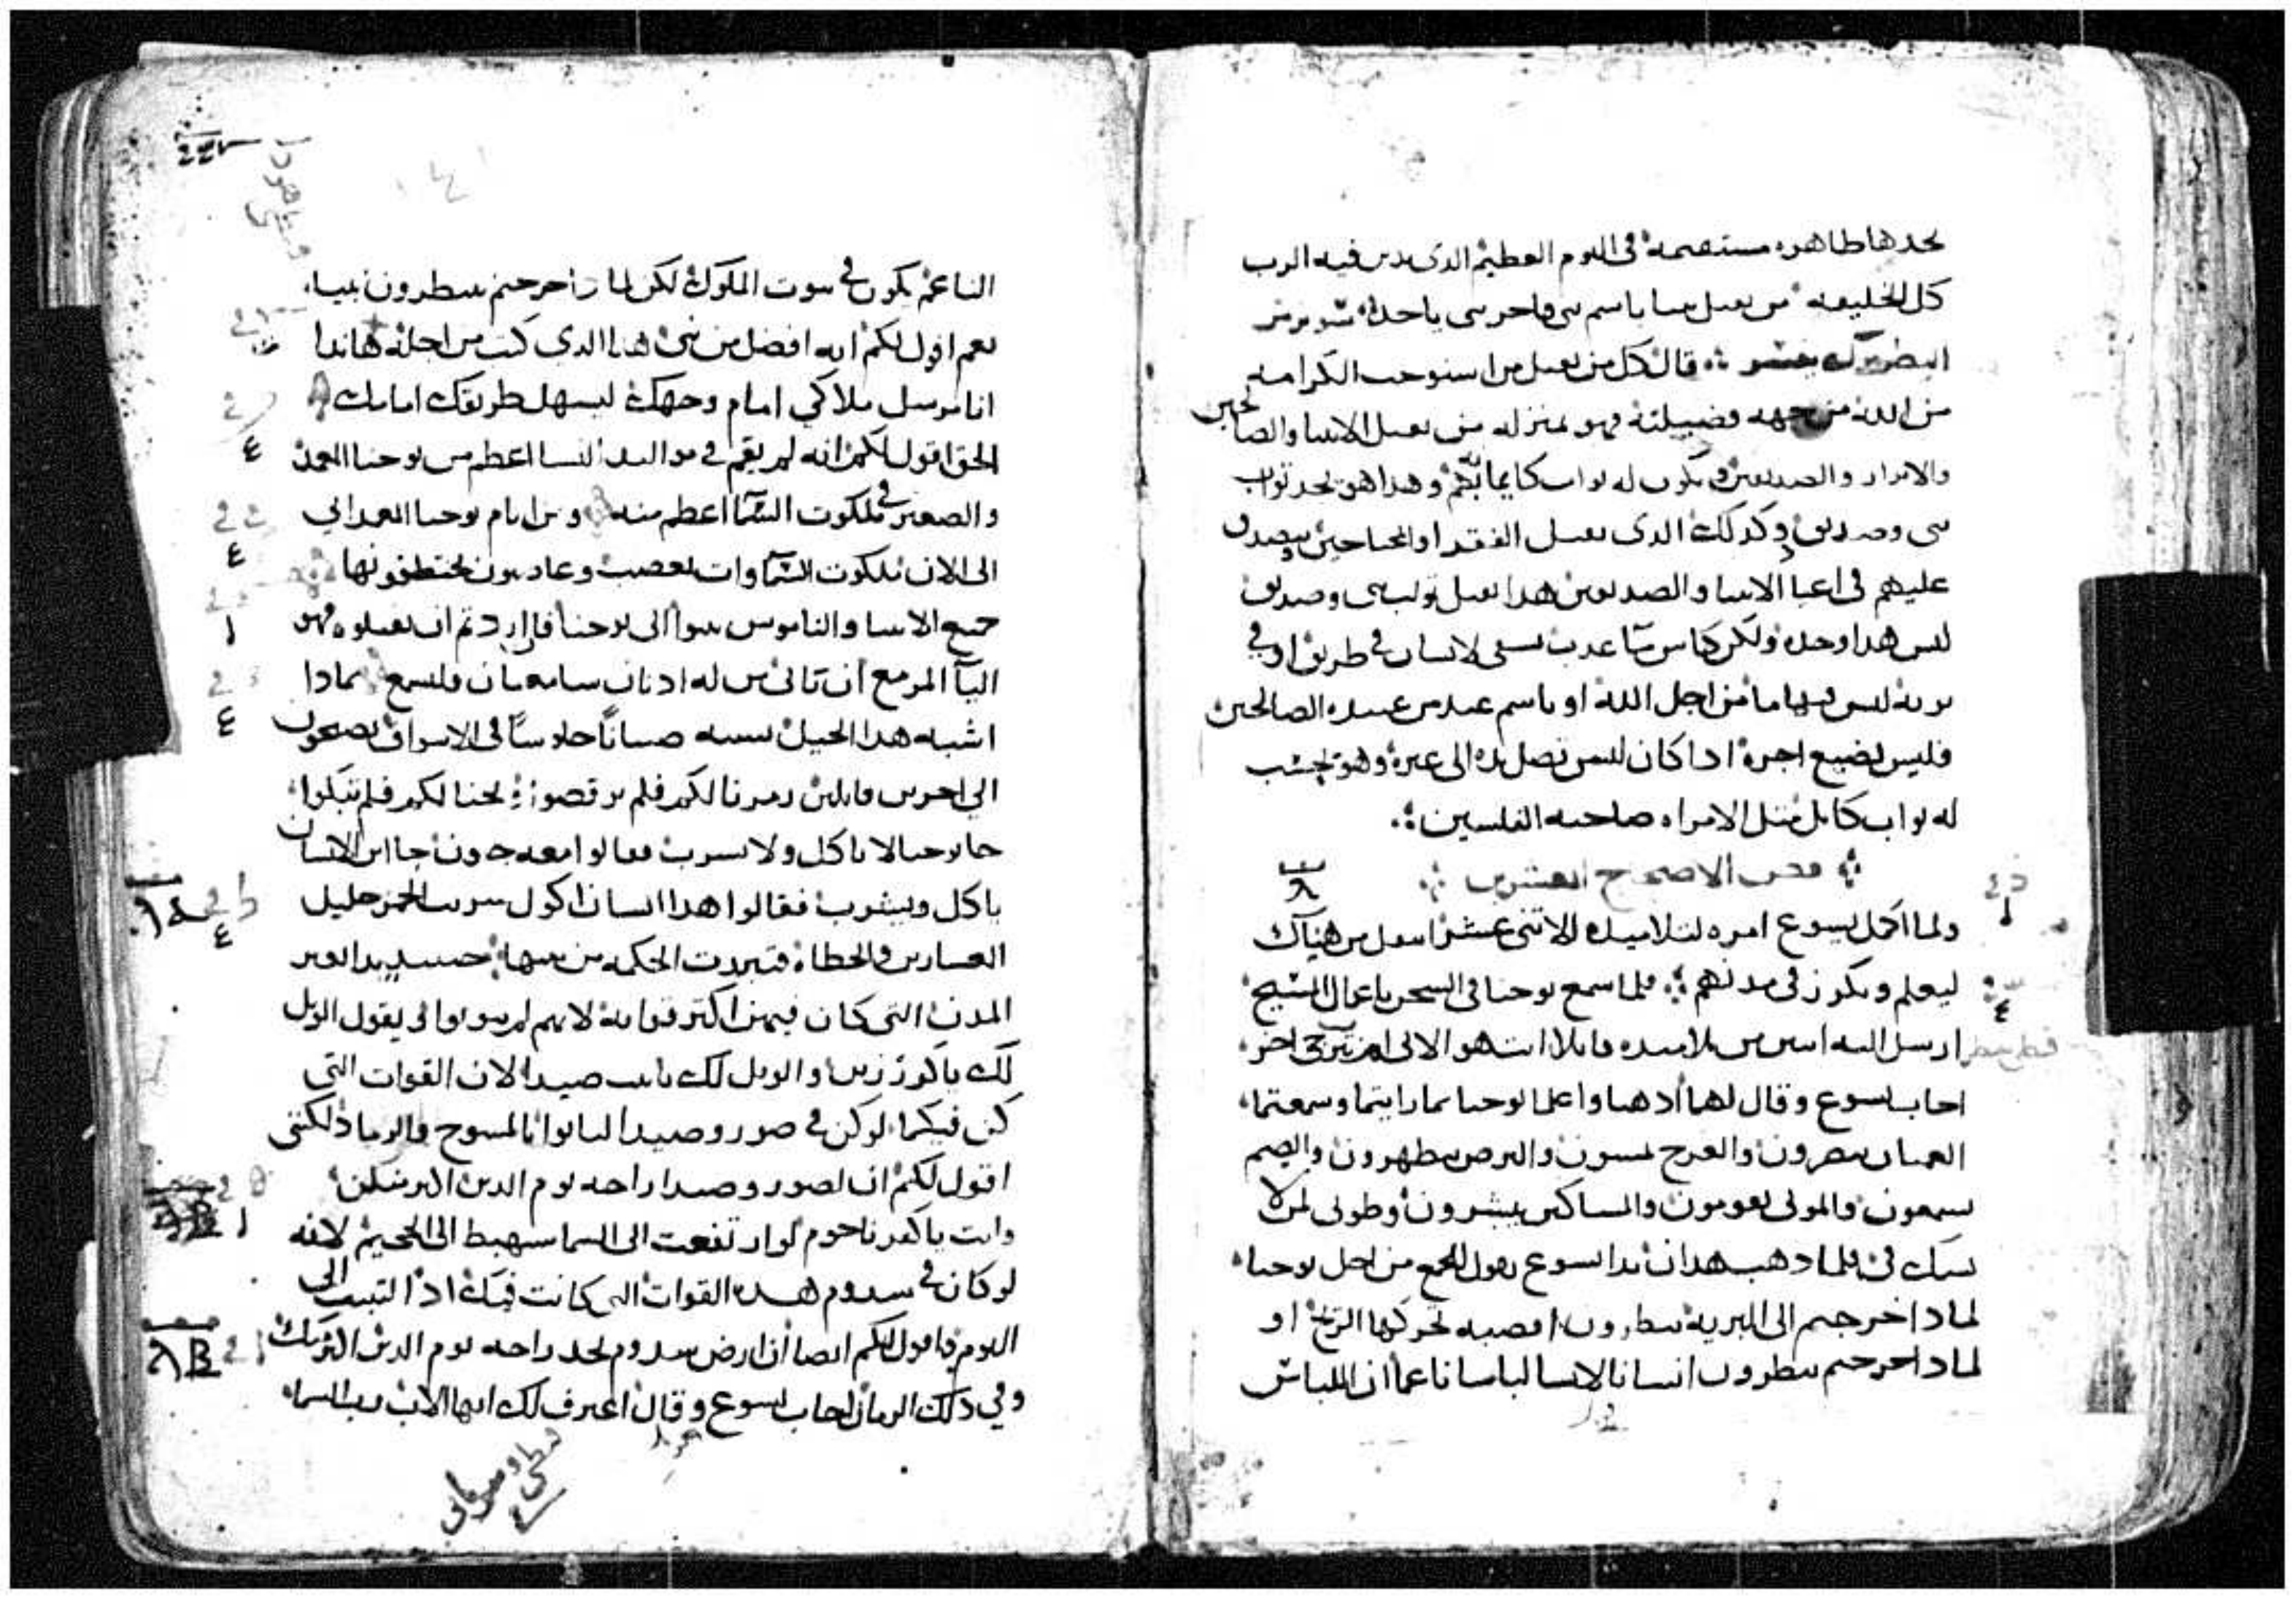 نجدها طاهره مستقيمة فى اليوم العظيم الذى يدين فيه الرب
كل الخليقه من يقبل نبيا باسم نبى فاجر نبى ياخذ
البطريرك قال كل من يقبل من استوجب الكرامه
من الله من جهه فضيلته فهو بمنزله من يقبل الانبيا والصالحين
والابرار والصديقين ويكون له ثواب كايمانهم وهذا هو يجد ثواب
نبى وصديق وكذلك الذى يقبل الفقرا والمحتاجين ويصدق
عليهم فى اعياد الانبيا والصديقين هذا يقبل ثواب نبى وصديق
ليس هذا وحده ولكن كاس ما عذب يسقى لانسان فى طريق او فى
بريه ليس فيها ما من اجل الله او باسم عبد من عبيده الصالحين
فليس يضيع اجره اذا كان ليس تصل يده الى غيره وهو يحسب
له ثواب كامل مثل الامراه صاحبه الفلسين
نص الاصحاح العشرين
ولما اكمل يسوع امره لتلاميذه الاثنى عشر انتقل من هناك
ليعلم ويكرز فى مدنهم فلما سمع يوحنا فى السجن باعمال المسيح
ارسل اليه اثنين من تلاميذه قايلا انت هو الاتى ام نترجى اخر
اجاب يسوع وقال لهما اذهبا واعلما يوحنا بما رايتما وسمعتما
العميان يبصرون والعرج يمشون والبرص يتطهرون والصم
يسمعون والموتى يقومون والمساكين يبشرون وطوبى لمن لا
يشك فى فلما ذهب هذان بدا يسوع يقول للجمع من اجل يوحنا
لماذا خرجتم الى البرية تنظرون اقصبه تحركها الريح او
لماذا خرجتم تنظرون انسانا لابسا لباسا ناعما ان اللباس
الناعم يكون فى بيوت الملوك لكن لماذا خرجتم تنظرون نبيا
نعم اقول لكم انه افضل من نبى هذا الذى كتب من اجله هانذا
انا مرسل ملاكى امام وجهك ليسهل طريقك امامك
الحق اقول لكم انه لم يقم فى مواليد النسا اعظم من يوحنا المعمد
والصغير فى ملكوت السما اعظم منه ومن ايام يوحنا المعمدانى
الى الان ملكوت السماوات تغصب وغاصبون يختطفونها
جميع الانبيا والناموس تنبوا الى يوحنا فان اردتم ان تقبلوه فهو
اليا المزمع ان تاتى من له اذنان سامعتان فليسمع بماذا
اشبه هذا الجيل يشبه صبيانا جلوسا فى الاسواق يصيحون
الى اخرين قايلين زمرنا لكم فلم ترقصوا نحنا لكم فلم تبكوا
جا يوحنا لا ياكل ولا يشرب فقالوا معه جنون جا ابن الانسان
ياكل ويشرب فقالوا هذا انسان اكول شريب الخمر خليل
العشارين والخطاة فتبررت الحكمه من بنيها حينيذ بدا يعير
المدن التى كان فيهن اكثر قواته لانهم لم يتوبوا يقول الويل
لك يا كورزين والويل لك يا بيت صيدا لان القوات التى
كن فيكما لو كن فى صور وصيدا لتابوا بالمسوح والرماد لكننى
اقول لكم ان لصور وصيدا راحه يوم الدين اكثر منكن
وانت يا كفرناحوم لو ارتفعت الى السما ستهبط الى الجحيم لانه
لو كان فى سدوم هذه القوات التى كانت فيك اذا لثبتت الى
اليوم واقول لكم ايضا ان ارض سدوم تجد راحه يوم الدين اكثر منك
وفى ذلك الزمان اجاب يسوع وقال اعترف لك ايها الاب رب السما